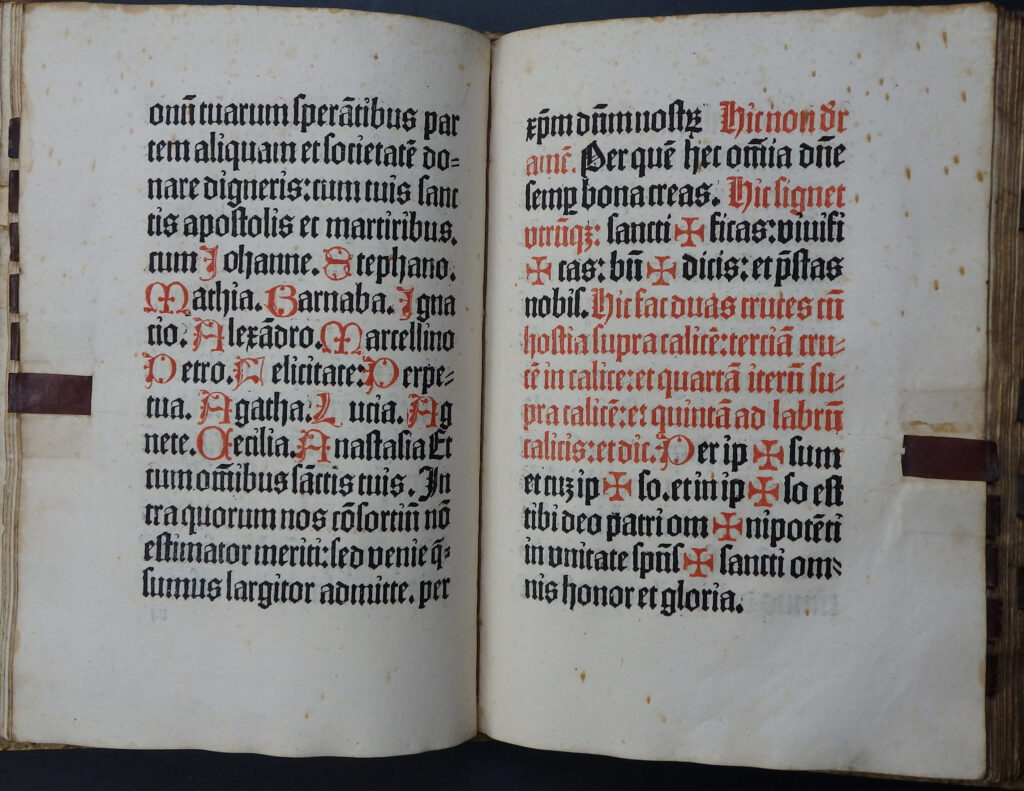 onū tuarum sperātibus par
tem aliquam et societatē do=
nare digneris: cum tuis sanc
tis apostolis et martiribus.
cum Johanne. Stephano.
Mathia. Barnaba. Igna
cio. Alexādro. Marcellino
Petro. Felicitate: Perpe=
tua. Agatha. Lucia. Ag
nete. Cecilia. Anastasia Et
cum om̄ibus sāctis tuis. In
tra quorum nos cōsortiū nō
estimator meriti: sed venie q̄=
sumus largitor admitte. per
xp̄m dn̄m nostꝝ Hic non dꝛ
amē. Per quē hec om̄ia dn̄e
semꝑ bona creas. Hic signet
utrūqꝫ: sancti ✠ ficas: vivifi
✠ cas: bn̄ ✠ dicis: et p̄stas
nobis. Hic fac duas cruces cū
hostia supra calicē: terciā cru=
cē in calice: et quartā iterū su=
pra calicē: et quintā ad labrū
calicis: et dic. Per ip ✠ sum
et cuꝫ ip ✠ so. et in ip ✠ so est
tibi deo patri om ✠ nipotēti
in unitate spūs ✠ sancti om=
nis honor et gloria.